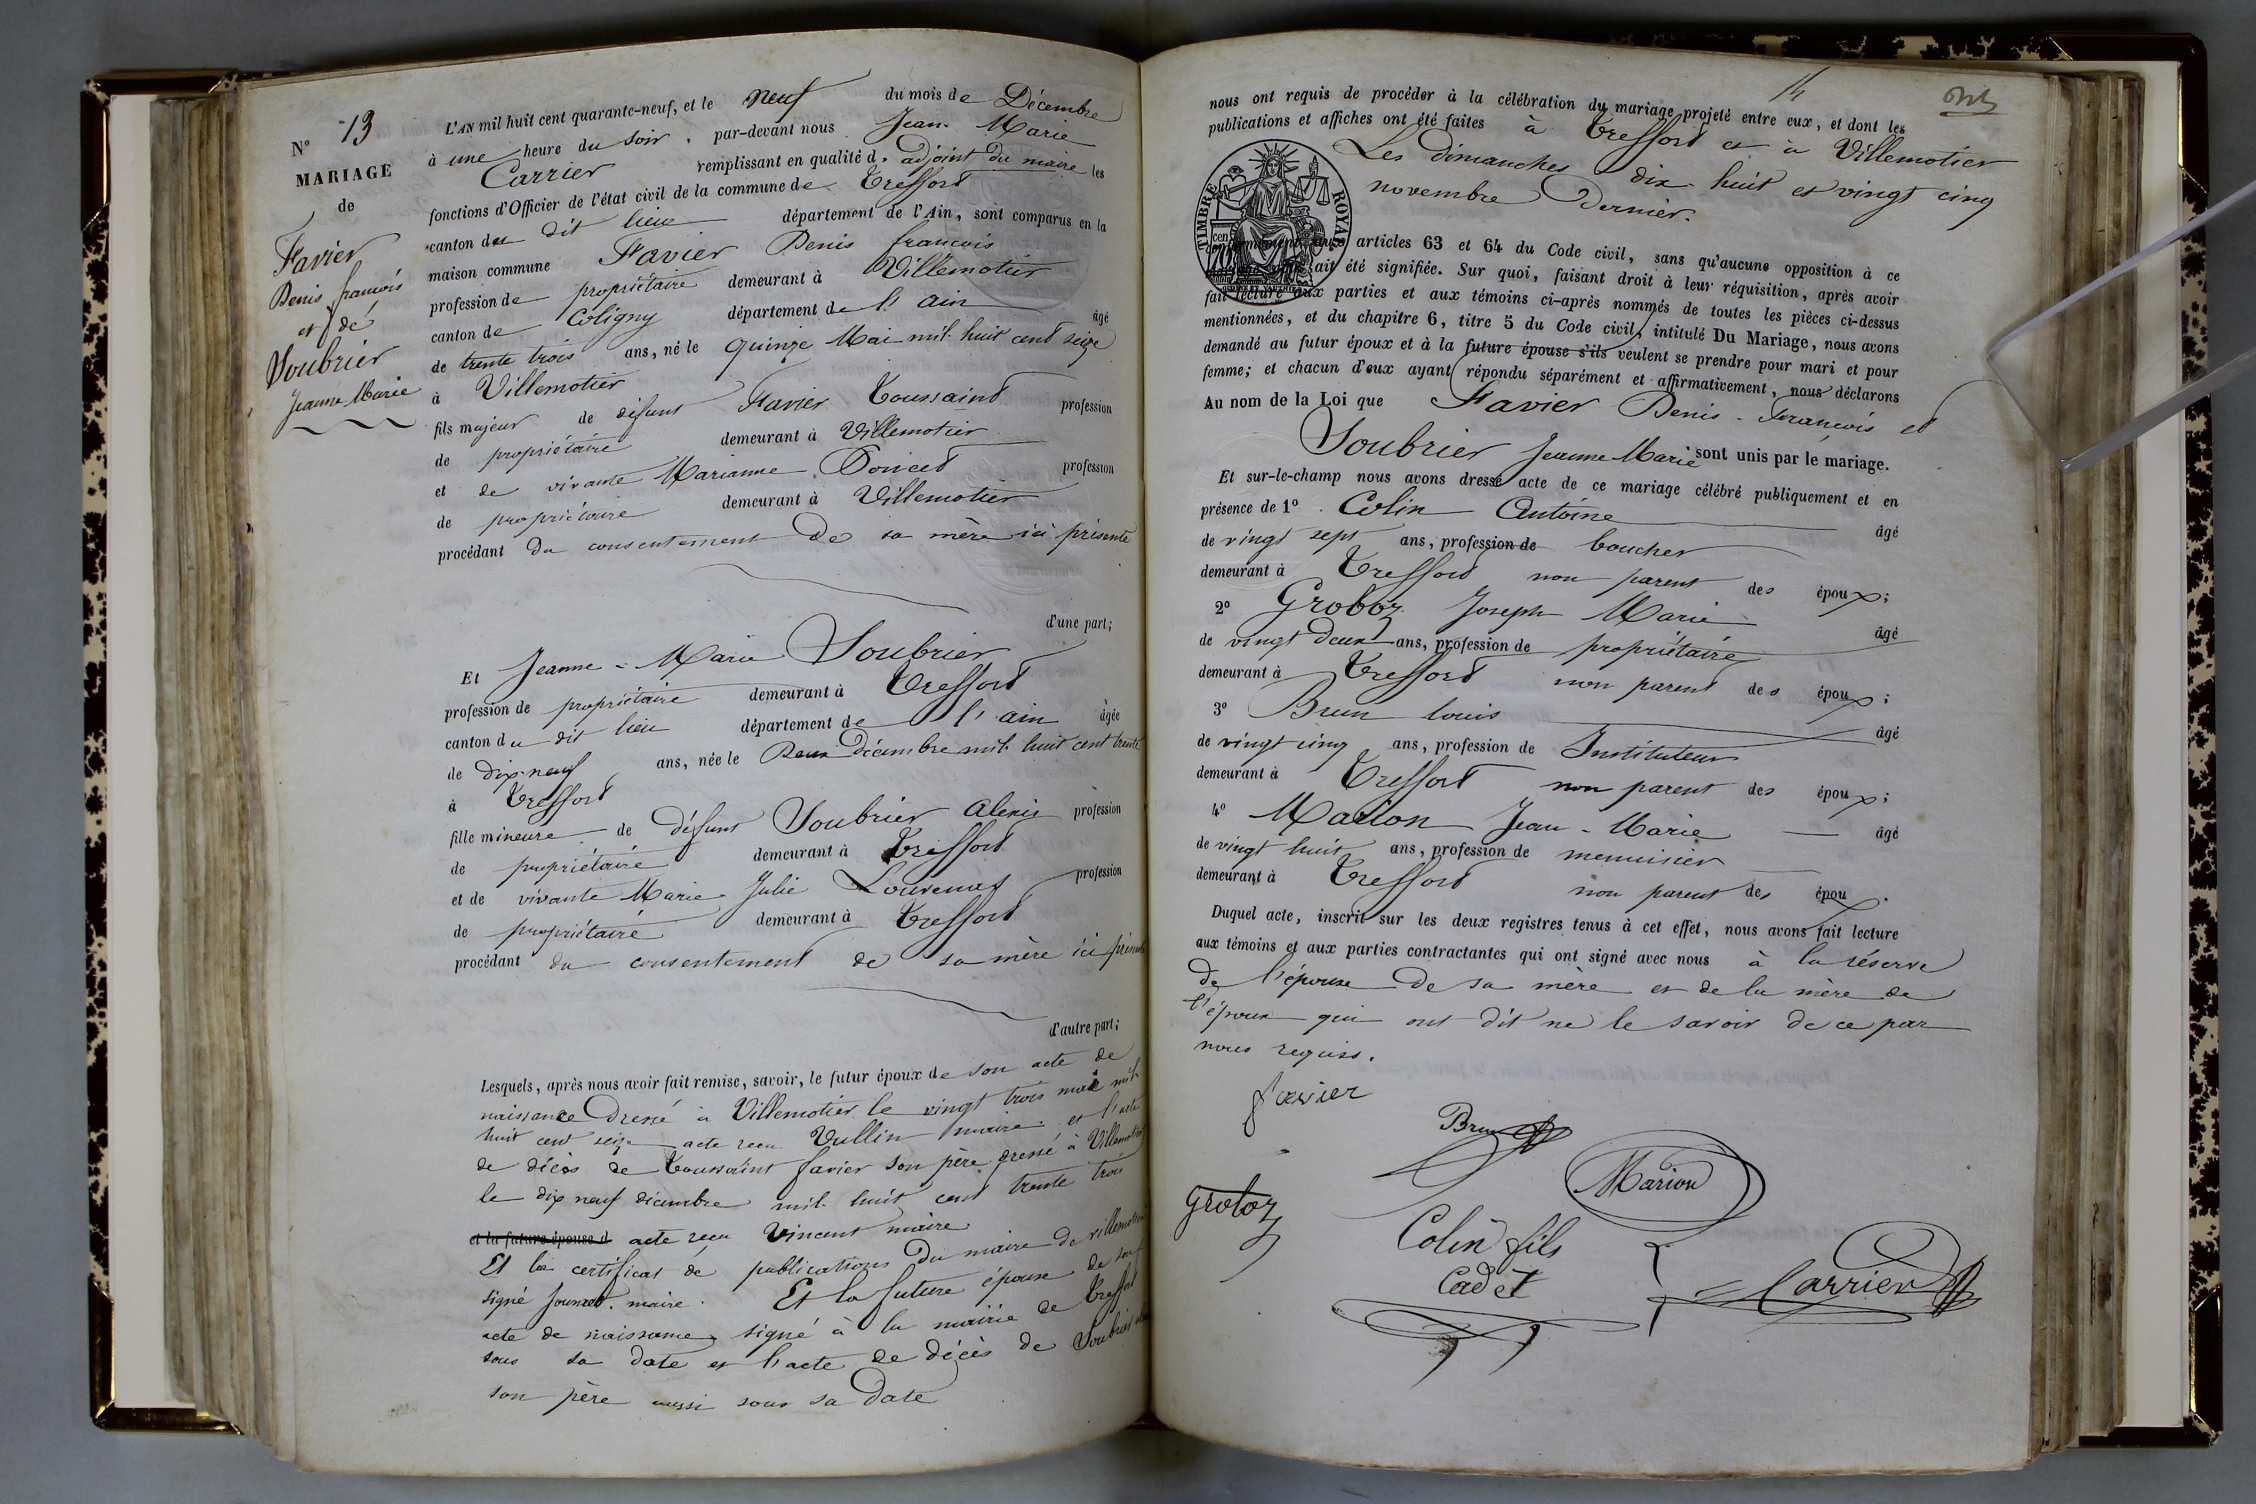 N° 13
MARIAGE
de
Favier
Denis françois
et de
Soubrier
Jeanne Marie
L'AN mil huit cent quarante-neuf, et le neuf du mois de Décembre
à une heure du soir, par-devant nous Jean Marie
Carrier remplissant en qualité d. adjoint du maire les
fonctions d'Officier de l'état civil de la commune de Treffort
canton du dit lieu département de l'Ain, sont comparus en la
maison commune Favier Denis francois
profession de propriétaire demeurant à Villemotier
canton de Coligny département de l'ain âgé
de trente trois ans, né le quinze Mai mil huit cent seize
à Villemotier
fils majeur de défunt Favier Toussaint profession
de propriétaire demeurant à Villemotier
et de vivante Marianne profession
de propriétaire demeurant à Villemotier
procédant du consentement de sa mère ici présente
d'une part;
Et Jeanne-Marie Soubrier
profession de propriétaire demeurant à Treffort
canton du dit lieu département de l'ain âgée
de dix-neuf ans, née le Deux Décembre mil huit cent trente
à Treffort
fille mineure de défunt Soubrier Alexis profession
de propriétaire demeurant à Treffort
et de vivante Marie Julie profession
de propriétaire demeurant à Treffort
procédant du consentement de sa mère ici présente
d'autre part;
Lesquels, après nous avoir fait remise, savoir, le futur époux de son acte de
naissance Dressé à Villemotier le vingt trois mai mil
huit cent seize acte recu Vullin maire et l'acte
de décès de Toussaint favier son père dressé à Villemotier
le dix neuf décembre mil huit cent trente trois
et la future épouse d acte recu Vincent maire
Et le certificat de publications du maire de villemotier
signé maire. Et la future épouse de son
acte de naissance signé à la mairie de Treffort
sous sa date et l'acte de décès de Soubrier
son père aussi sous sa date
14
nous ont requis de procéder à la célébration du mariage projeté entre eux, et dont les
publications et affiches ont été faites à Treffort et à Villemotier
Les dimanches dix huit et vingt cinq
novembre Dernier.
TIMBRE ROYAL
70 cen
conformément aux articles 63 et 64 du Code civil, sans qu'aucune opposition à ce
ait été signifiée. Sur quoi, faisant droit à leur réquisition, après avoir
fait lecture aux parties et aux témoins ci-après nommés de toutes les pièces ci-dessus
mentionnées, et du chapitre 6, titre 5 du Code civil, intitulé Du Mariage, nous avons
demandé au futur époux et à la future épouse s'ils veulent se prendre pour mari et pour
femme; et chacun d'eux ayant répondu séparément et affirmativement, nous déclarons
Au nom de la Loi que Favier Denis-François et
Soubrier Jeanne Marie sont unis par le mariage.
Et sur-le-champ nous avons dressé acte de ce mariage célébré publiquement et en
présence de 1° Colin Antoine âgé
de vingt sept ans, profession de boucher
demeurant à Treffort non parent des époux;
2° Groboz Joseph Marie âgé
de vingt deux ans, profession de propriétaire
demeurant à Treffort non parent des époux;
3° Brun louis âgé
de vingt cinq ans, profession de Instituteur
demeurant à Treffort non parent des époux;
4° Marion Jean-Marie âgé
de vingt huit ans, profession de menuisier
demeurant à Treffort non parent des époux.
Duquel acte, inscrit sur les deux registres tenus à cet effet, nous avons fait lecture
aux témoins et aux parties contractantes qui ont signé avec nous à la réserve
de l'épouse de sa mère et de la mère de
l'époux qui ont dit ne le savoir de ce par
nous requis.
favier
Brun
Marion
groboz
Colin fils
Cadet
Carrier